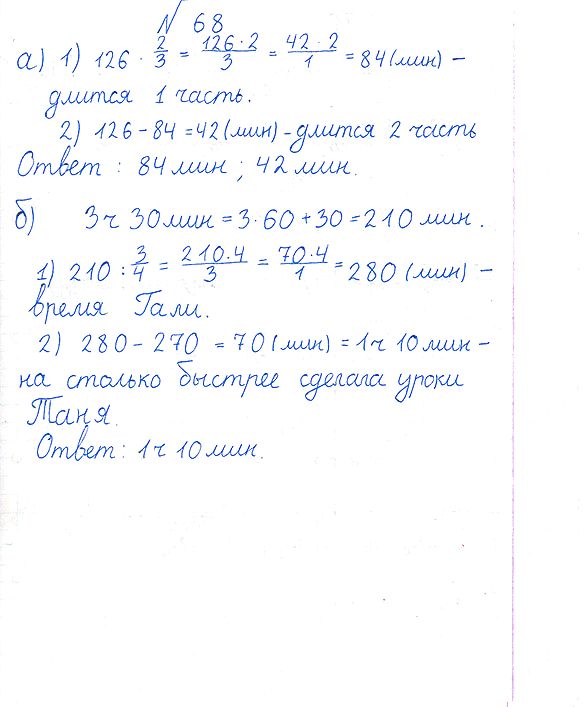 № 68
а) 1) 126 · 2/3 = 126·2/3 = 42·2/1 = 84 (мин) –
длится 1 часть.
2) 126 – 84 = 42 (мин) – длится 2 часть
Ответ : 84 мин ; 42 мин.
б) 3ч 30 мин = 3·60 + 30 = 210 мин .
1) 210 : 3/4 = 210·4/3 = 70·4/1 = 280 (мин) –
время Гали.
2) 280 – 270 = 70 (мин) = 1ч 10 мин –
на столько быстрее сделала уроки
Таня.
Ответ : 1ч 10 мин.